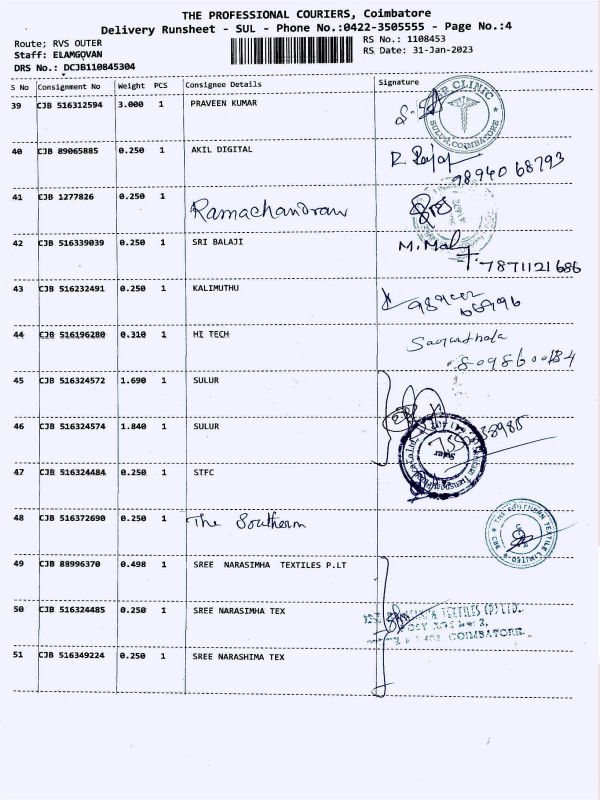 THE PROFESSIONAL COURIERS, Coimbatore
Delivery Runsheet - SUL - Phone No.:0422-3505555 - Page No.:4
Route; RVS OUTER
RS No.: 1108453
Staff: ELAMGOVAN
RS Date: 31-Jan-2023
DRS No.: DCJB110845304
S No Consignment No Weight PCS Consignee Details Signature
39 CJB 516312594 3.000 1 PRAVEEN KUMAR
CLINIC
SULUR, COIMBATORE
40 CJB 89065885 0.250 1 AKIL DIGITAL
98940 68793
41 CJB 1277826 0.250 1 Ramachandran
42 CJB 516339039 0.250 1 SRI BALAJI M.Mal
7871121686
43 CJB 516232491 0.250 1 KALIMUTHU
44 CJB 516196280 0.310 1 HI TECH
45 CJB 516324572 1.690 1 SULUR
46 CJB 516324574 1.840 1 SULUR
Sulur
47 CJB 516324484 0.250 1 STFC
48 CJB 516372690 0.250 1 The Southern
THE SOUTHERN TEXTILE LIMITED
CBE
49 CJB 88996370 0.498 1 SREE NARASIMHA TEXTILES P.LT
50 CJB 516324485 0.250 1 SREE NARASIMHA TEX
TEXTILES (P) LTD.
COIMBATORE
51 CJB 516349224 0.250 1 SREE NARASHIMA TEX